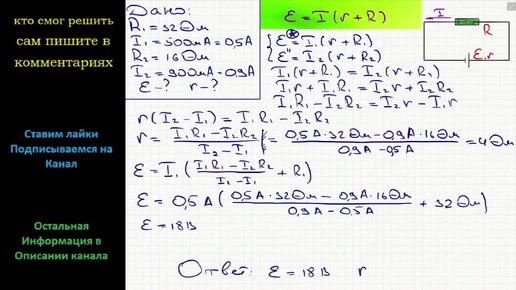 кто смог решить
сам пишите в
комментариях
Ставим лайки
Подписываемся на
Канал
Остальная
Информация в
Описании канала
Дано:
R₁ = 32 Ом
I₁ = 500мА = 0,5А
R₂ = 16 Ом
I₂ = 900мА = 0,9А
ε - ? r - ?
ε = I (r + R)
ε = I₁ (r + R₁)
ε = I₂ (r + R₂)
I₁(r + R₁) = I₂(r + R₂)
I₁r + I₁R₁ = I₂r + I₂R₂
I₁R₁ - I₂R₂ = I₂r - I₁r
I
R
ε, r
r(I₂ - I₁) = I₁R₁ - I₂R₂
r = (I₁R₁ - I₂R₂)/(I₂ - I₁) = (0,5А · 32 Ом - 0,9А · 16 Ом)/(0,9А - 0,5А) = 4 Ом
ε = I₁ ((I₁R₁ - I₂R₂)/(I₂ - I₁) + R₁)
ε = 0,5А ((0,5А · 32 Ом - 0,9А · 16 Ом)/(0,9А - 0,5А) + 32 Ом)
ε = 18В
Ответ: ε = 18В r